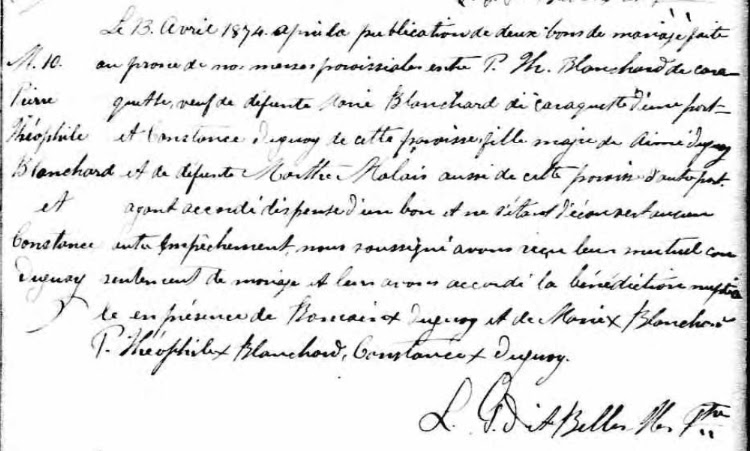 Le 13. Avril 1874. après la publication de deux bans de mariage faite
M. 10. au prone de nos messes paroissiales entre P. Th. Blanchard de cara
Pierre quette, veuf de défunte Marie Blanchard de caraquette d'une part-
Théophile et Constance duguay de cette paroisse, fille majre de Aimé duguay
Blanchard et de défunte Marthe Malais aussi de cette paroisse d'autre part.
et ayant accordé dispense d'un ban et ne s'étant découvert aucun
Constance autre empêchement, nous soussigné avons reçu leur mutuel con
Duguay sentement de mariage et leur avons accordé la bénédiction nuptia
le en présence de Romain x duguay et de Marie x Blanchard
P. Théophile x Blanchard, Constance x duguay.
L. G. dit Belles Iles Ptre